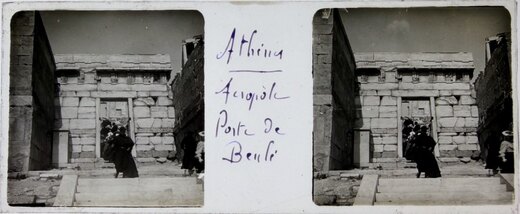 Athina
Acropole
Porte de
Beulé